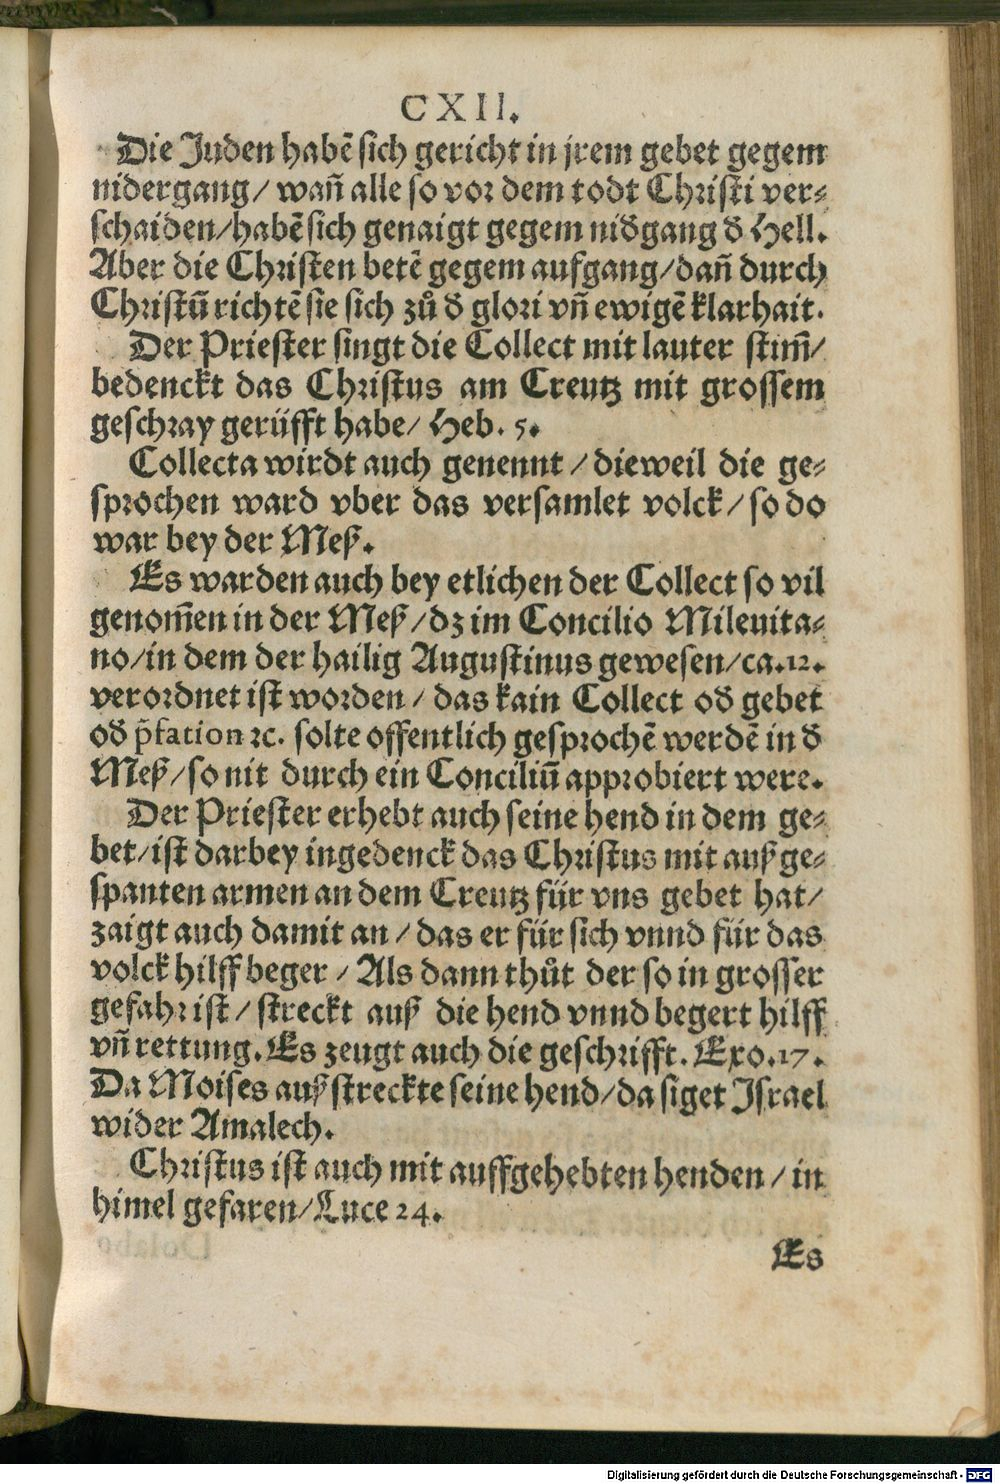 CXII.
Die Juden habē sich gericht in jrem gebet gegem
nidergang/ wañ alle so vor dem todt Christi ver⸗
schaiden/habē sich genaigt gegem nidgang d Hell.
Aber die Christen betē gegem aufgang/dañ durch
Christū richtē sie sich zů d glori vñ ewigē klarhait.
Der Priester singt die Collect mit lauter stim̃/
bedenckt das Christus am Creutz mit grossem
geschray gerüfft habe/ Heb. 5.
Collecta wirdt auch genennt / dieweil die ge⸗
sprochen ward vber das versamlet volck / so do
war bey der Meß.
Es warden auch bey etlichen der Collect so vil
genom̃en in der Meß /dz im Concilio Mileuita⸗
no/in dem der hailig Augustinus gewesen/ca.12.
verordnet ist worden / das kain Collect od gebet
od p̃fation ꝛc. solte offentlich gesprochē werdē in d
Meß/so nit durch ein Conciliū approbiert were.
Der Priester erhebt auch seine hend in dem ge⸗
bet/ist darbey ingedenck das Christus mit außge⸗
spanten armen an dem Creutz für vns gebet hat/
zaigt auch damit an / das er für sich vnnd für das
volck hilff beger / Als dann thůt der so in grosser
gefahr ist / streckt auß die hend vnnd begert hilff
vñ rettung. Es zeugt auch die geschrifft. Exo.17.
Da Moises außstreckte seine hend/da siget Israel
wider Amalech.
Christus ist auch mit auffgehebten henden / in
himel gefaren/Luce 24.
Es
Digitalisierung gefördert durch die Deutsche Forschungsgemeinschaft - DFG